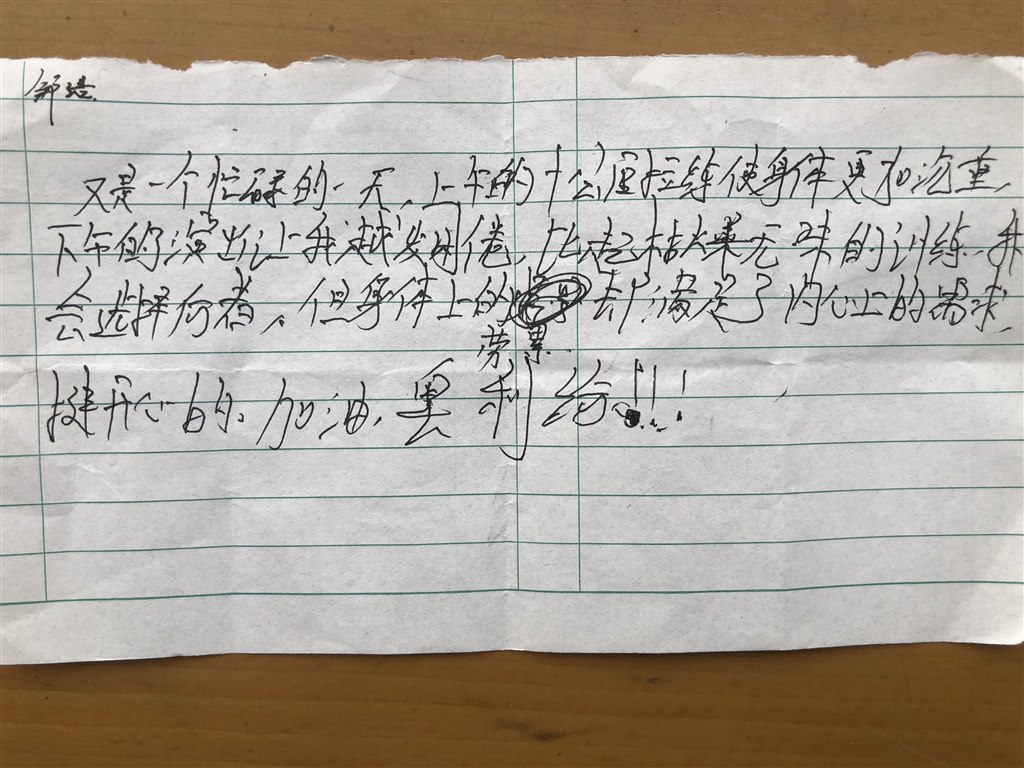 邹培
又是一个忙碌的一天,上午的十公里拉练使身体更加沉重,
下午的演出让我越发困倦,比起枯燥无味的训练,我
会选择何者,但身体上的却满足了内心上的需求,
劳累
挺开心的,加油,奥利给!!!